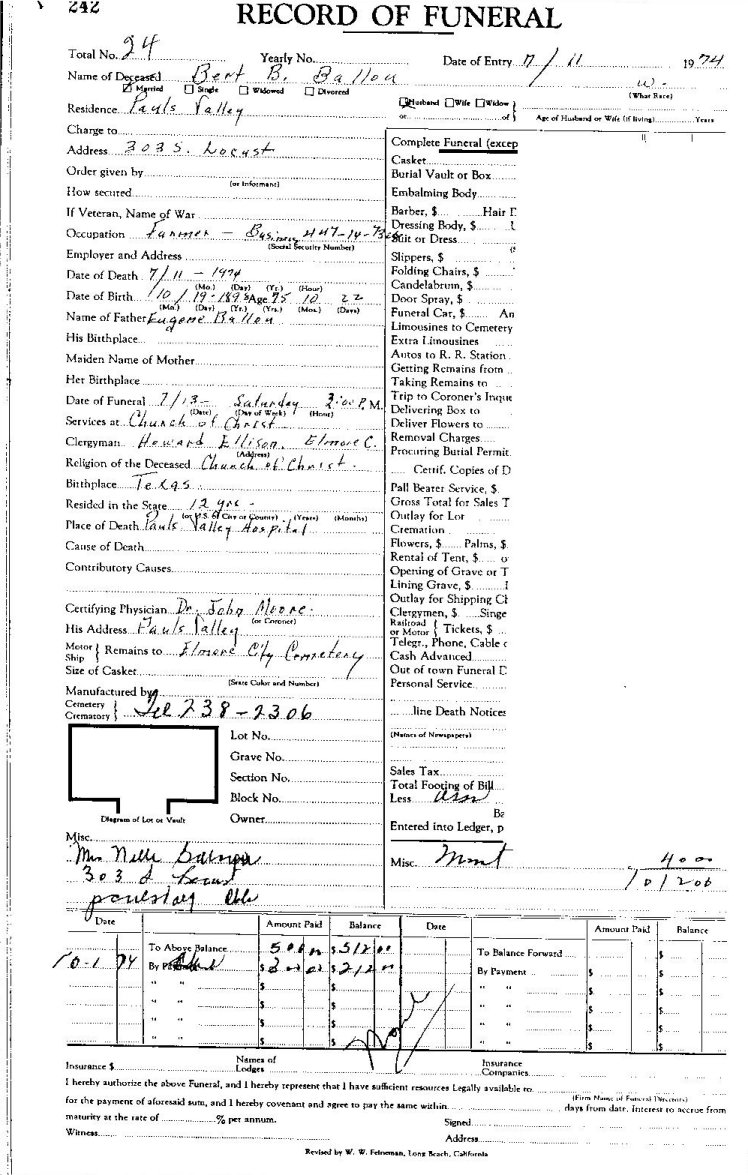 242
RECORD OF FUNERAL
Total No. 24 Yearly No. Date of Entry 7/11 1974
Name of Deceased Bert B. Ballou W.
Married Single Widowed Divorced (What Race)
Residence Pauls Valley
Husband Wife Widow
or of Age of Husband or Wife (if living) Years
Charge to
Address 303 S. Locust
Order given by
(or Informant)
How secured
If Veteran, Name of War
Occupation Farmer - 447-14-
(Social Security Number)
Employer and Address
Date of Death 7/11 - 1974
(Mo.) (Day) (Yr.) (Hour)
Date of Birth 10/19-1898 Age 75 10 22
(Mo.) (Day) (Yr.) (Yrs.) (Mos.) (Days)
Name of Father Eugene Ballou
His Birthplace
Maiden Name of Mother
Her Birthplace
Date of Funeral 7/13- Saturday 2:00 P.M.
(Date) (Day of Week) (Hour)
Services at Church of Christ
Clergyman Howard Ellison, Elmore C.
(Address)
Religion of the Deceased Church of Christ.
Birthplace Texas
Resided in the State 12 yrs.
(or U.S. or City or County) (Years) (Months)
Place of Death Pauls Valley Hospital
Cause of Death
Contributory Causes
Certifying Physician Dr. John Moore.
(or Coroner)
His Address Pauls Valley
Motor Ship Remains to Elmore City Cemetery
Size of Casket
(State Color and Number)
Manufactured by
Cemetery Crematory Tel 238-2306
Lot No.
Grave No.
Section No.
Block No.
Diagram of Lot or Vault Owner
Misc.
Mrs Nelle
303 S Locust
Complete Funeral (excep
Casket
Burial Vault or Box
Embalming Body
Barber, $ Hair D
Dressing Body, $
Suit or Dress
Slippers, $
Folding Chairs, $
Candelabrum, $
Door Spray, $
Funeral Car, $ An
Limousines to Cemetery
Extra Limousines
Autos to R. R. Station
Getting Remains from
Taking Remains to
Trip to Coroner's Inque
Delivering Box to
Deliver Flowers to
Removal Charges
Procuring Burial Permit
Certif. Copies of D
Pall Bearer Service, $
Gross Total for Sales T
Outlay for Lot
Cremation
Flowers, $ Palms, $
Rental of Tent, $ o
Opening of Grave or T
Lining Grave, $
Outlay for Shipping Ch
Clergymen, $ Singe
Railroad or Motor Tickets, $
Telegr., Phone, Cable c
Cash Advanced
Out of town Funeral D
Personal Service
line Death Notices
(Names of Newspapers)
Sales Tax
Total Footing of Bill
Less
Ba
Entered into Ledger, p
Misc. 400
101200
Date Amount Paid Balance Date Amount Paid Balance
To Above Balance 500 00 512 00 To Balance Forward $
10-1 74 By $ 300 00 $ 212 00 By Payment $ $
" " $ $ " " $ $
" " $ $ " " $ $
" " $ $ " " $ $
" " $ $ " " $ $
Insurance $ Names of Lodges Insurance Companies
I hereby authorize the above Funeral, and I hereby represent that I have sufficient resources Legally available to
(Firm Name of Funeral Directors)
for the payment of aforesaid sum, and I hereby covenant and agree to pay the same within days from date. Interest to accrue from
maturity at the rate of % per annum. Signed
Witness Address
Revised by W. W. Feineman, Long Beach, California